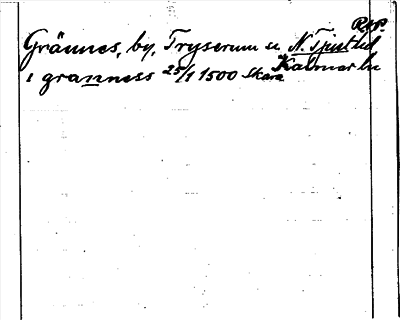 Rep.
Grännes, by, Tryserum sn N. Tjust hd
Kalmar län
i granness 25/1 1500 Skara